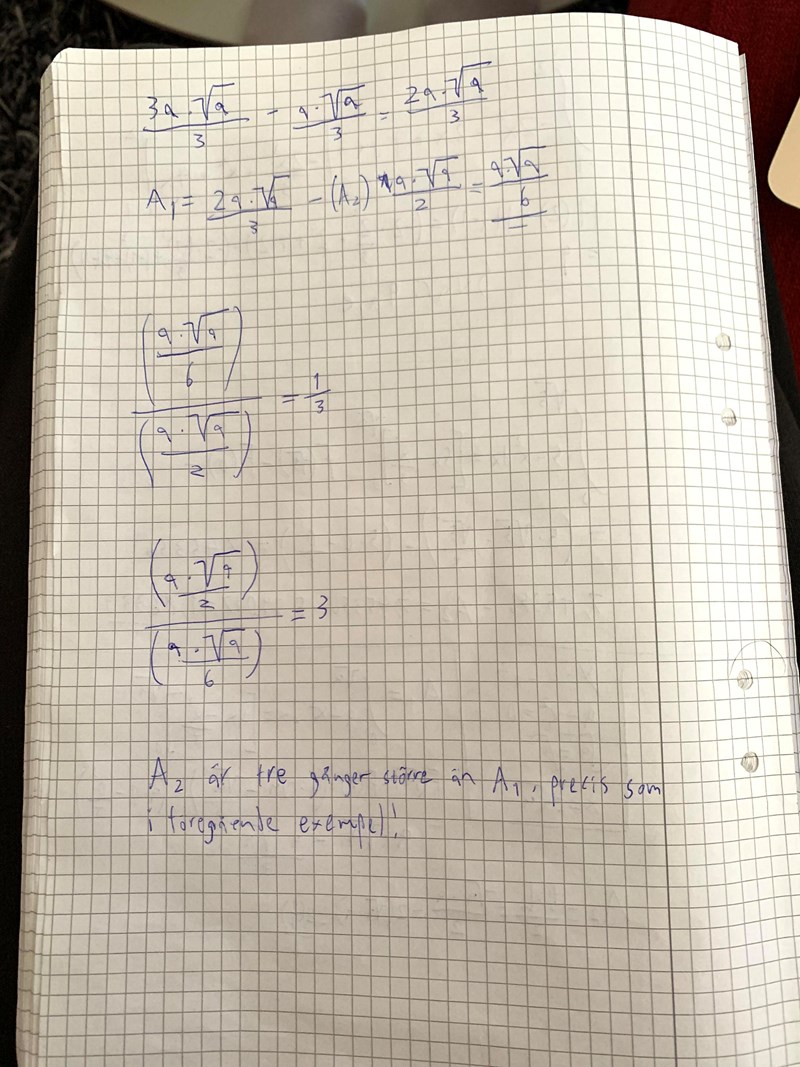 3a·√a/3 - a·√a/3 = 2a·√a/3
A₁ = 2a·√a/3 - (A₂) a·√a/2 = a·√a/6
(a·√a/6)/(a·√a/2) = 1/3
(a·√a/2)/(a·√a/6) = 3
A₂ är tre gånger större än A₁, precis som
i föregående exempel!